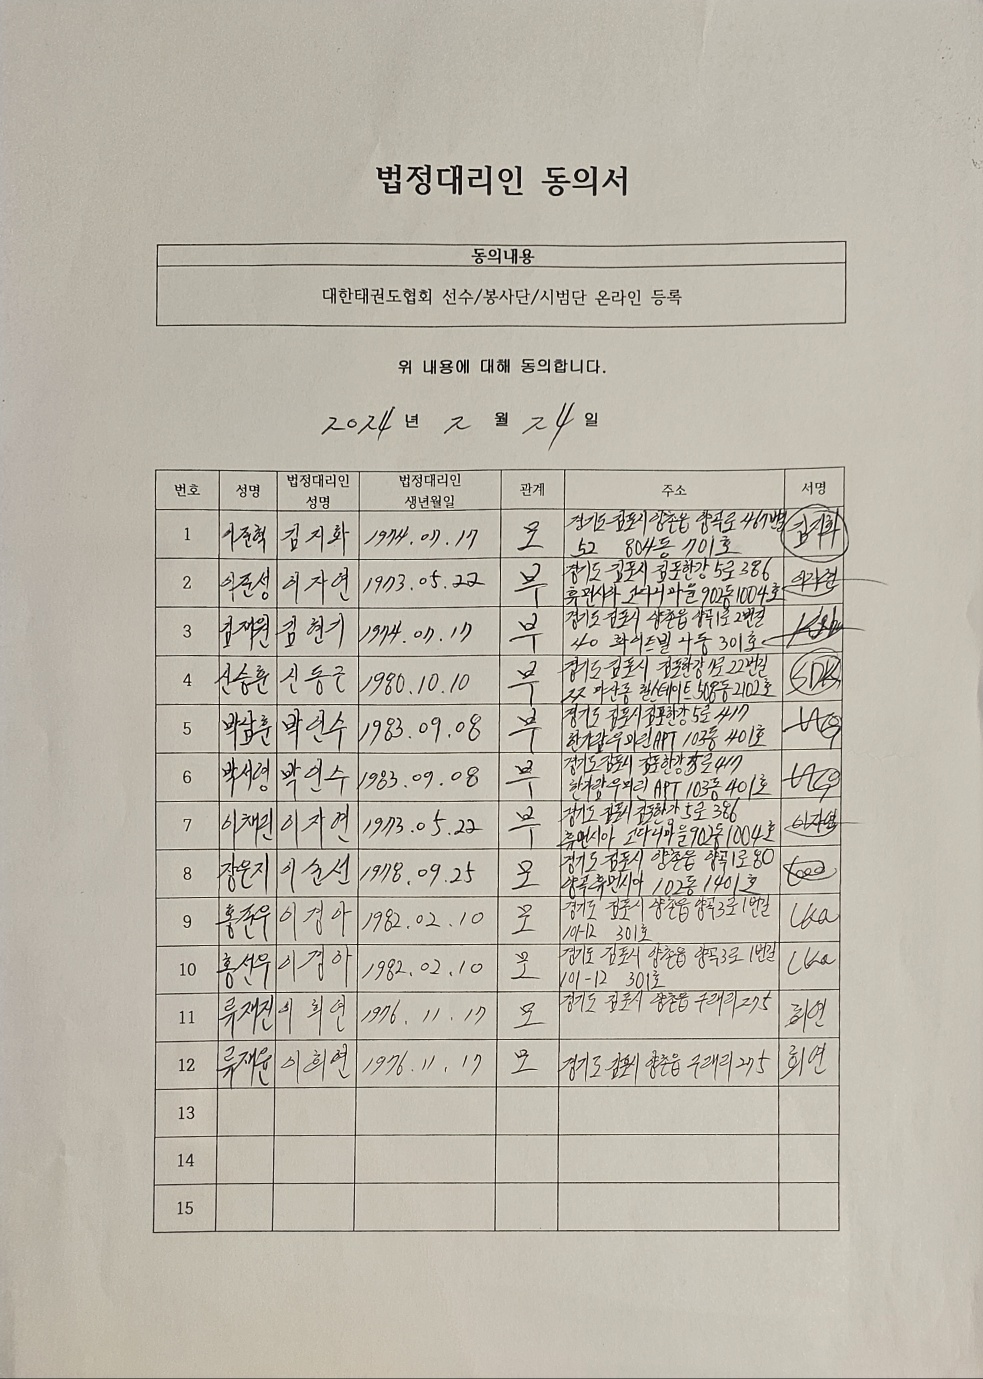 법정대리인 동의서
동의내용
대한태권도협회 선수/봉사단/시범단 온라인 등록
위 내용에 대해 동의합니다.
2024 년 2 월 24 일
번호 성명 법정대리인 성명 법정대리인 생년월일 관계 주소 서명
1 이준혁 김지화 1974.07.17 모 경기도 김포시 양촌읍 양곡로 467번길
52 804동 701호 김지화
2 이준성 이자연 1973.05.22 부 경기도 김포시 김포한강5로 386
휴먼시아 고다니마을 902동 1004호
3 김재원 김현기 1974.07.17 부 경기도 김포시 양촌읍 양곡1로 2번길
40 화이트빌 나동 301호
4 신승훈 신동근 1980.10.10 부 경기도 김포시 김포한강1로 22번길
마산동 힐스테이트 508동 2102호 SDK
5 박훈 박인수 1983.09.08 부 경기도 김포시 김포한강5로 417
한가람우미린APT 103동 401호
6 박서영 박인수 1983.09.08 부 경기도 김포시 김포한강5로 417
한가람우미린 APT 103동 401호
7 이채린 이자연 1973.05.22 부 경기도 김포시 김포한강5로 386
휴먼시아 고다니마을 902동 1004호 이자연
8 장윤지 이순선 1978.09.25 모 경기도 김포시 양촌읍 양곡1로 80
양곡휴먼시아 102동 1401호
9 홍준우 이경아 1982.02.10 모 경기도 김포시 양촌읍 양곡3로 1번길
301호
10 홍선우 이경아 1982.02.10 모 경기도 김포시 양촌읍 양곡3로 1번길
101-12 301호
11 류재진 이희연 1976.11.17 모 경기도 김포시 양촌읍 구래리 275 희연
12 류재윤 이희연 1976.11.17 모 경기도 김포시 양촌읍 구래리 275 희연
13
14
15